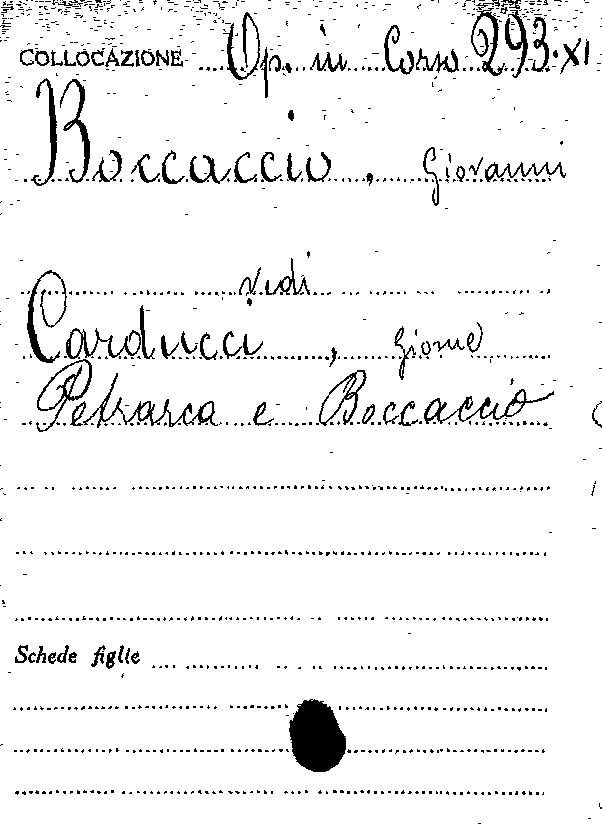 COLLOCAZIONE Op. in Corso 293.XI
Boccaccio, Giovanni
vedi
Carducci, Giosue
Petrarca e Boccaccio
Schede figlie